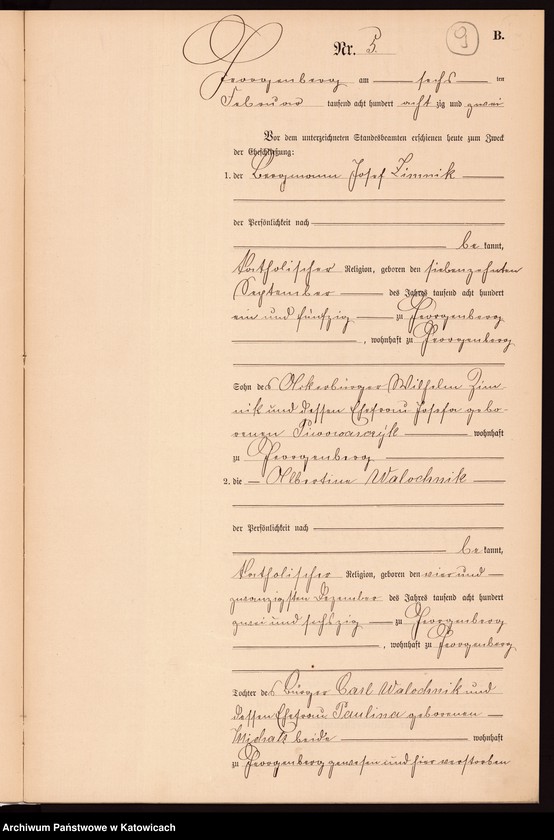 9
B.
Nr. 5.
Georgenberg am sechs ten
Februar tausend acht hundert acht zig und zwei
Vor dem unterzeichneten Standesbeamten erschienen heute zum Zweck
der Eheschließung:
1. der Bergmann Josef Zimnik
der Persönlichkeit nach
be kannt,
katholischer Religion, geboren den siebenzehnten
September des Jahres tausend acht hundert
ein und fünfzig zu Georgenberg
, wohnhaft zu Georgenberg
Sohn des Ackerbürger Wilhelm Zim-
nik und dessen Ehefrau Josefa gebo-
renen Piwowarczyk wohnhaft
zu Georgenberg
2. die Albertine Walochnik
der Persönlichkeit nach
be kannt,
katholischer Religion, geboren den vier und
zwanzigsten Dezember des Jahres tausend acht hundert
zwei und sechszig zu Georgenberg
, wohnhaft zu Georgenberg
Tochter des Bürger Carl Walochnik und
dessen Ehefrau Paulina geborenen
Michatz beide wohnhaft
zu Georgenberg gewesen und hier verstorben
Archiwum Państwowe w Katowicach